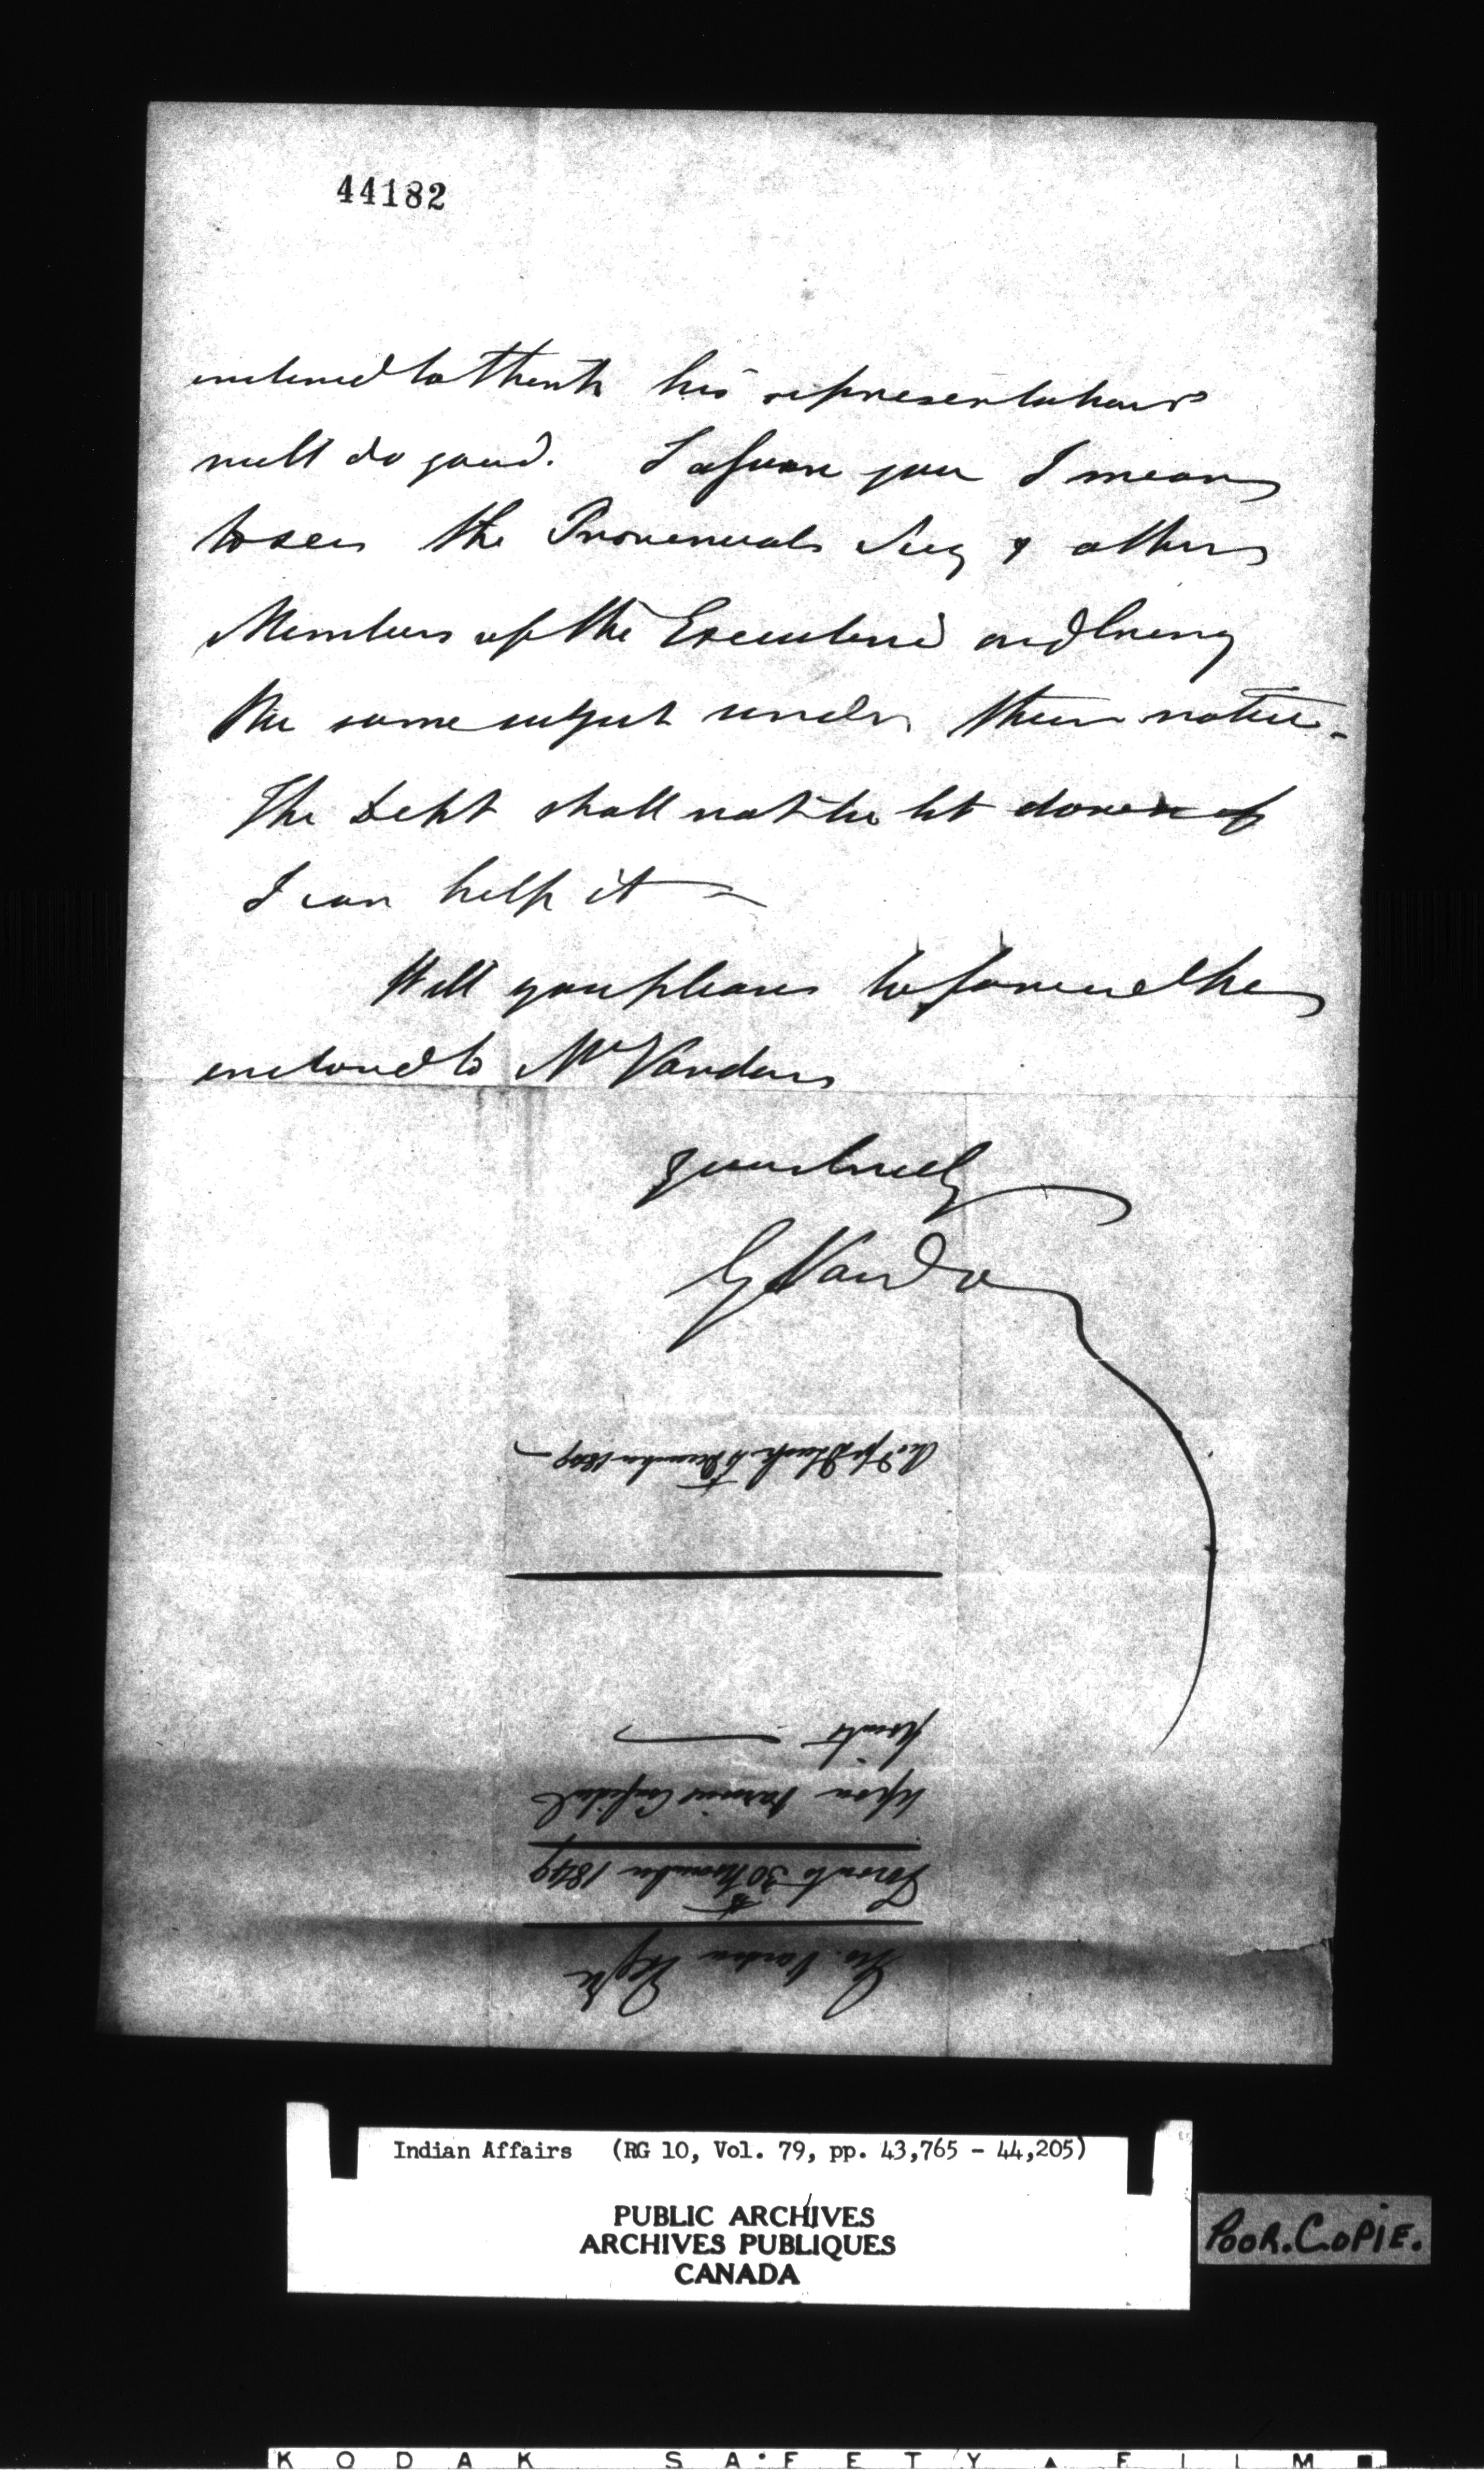 44182
inclined to think his representations
will do good. I assure you I mean
to see the Provincial Secy & other
Members of the Executive and bring
the same subject under their notice.
The Dept shall not be let down if
I can help it —
Will you please to forward the
enclosed to Mrs Vardon
yours truly
G Vardon
December 1849 —
points —
Upon various Confidential
Toronto 30th November 1849
Geo. Vardon Esqre
Indian Affairs (RG 10, Vol. 79, pp. 43,765 - 44,205)
PUBLIC ARCHIVES
ARCHIVES PUBLIQUES
CANADA
POOR.COPIE.
KODAK SAFETY FILM